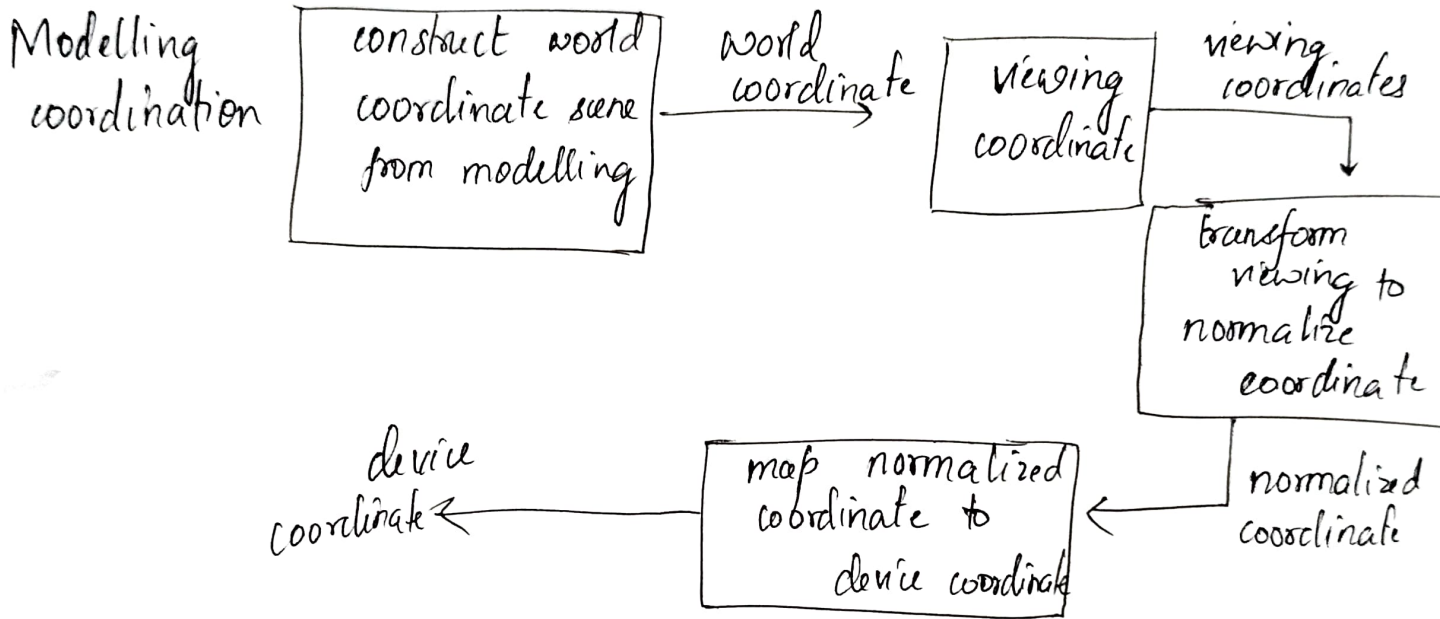 Modelling
coordination
construct world
coordinate scene
from modelling
world
coordinate
viewing
coordinate
viewing
coordinates
transform
viewing to
normalize
coordinate
normalized
coordinate
map normalized
coordinate to
device coordinate
device
coordinate